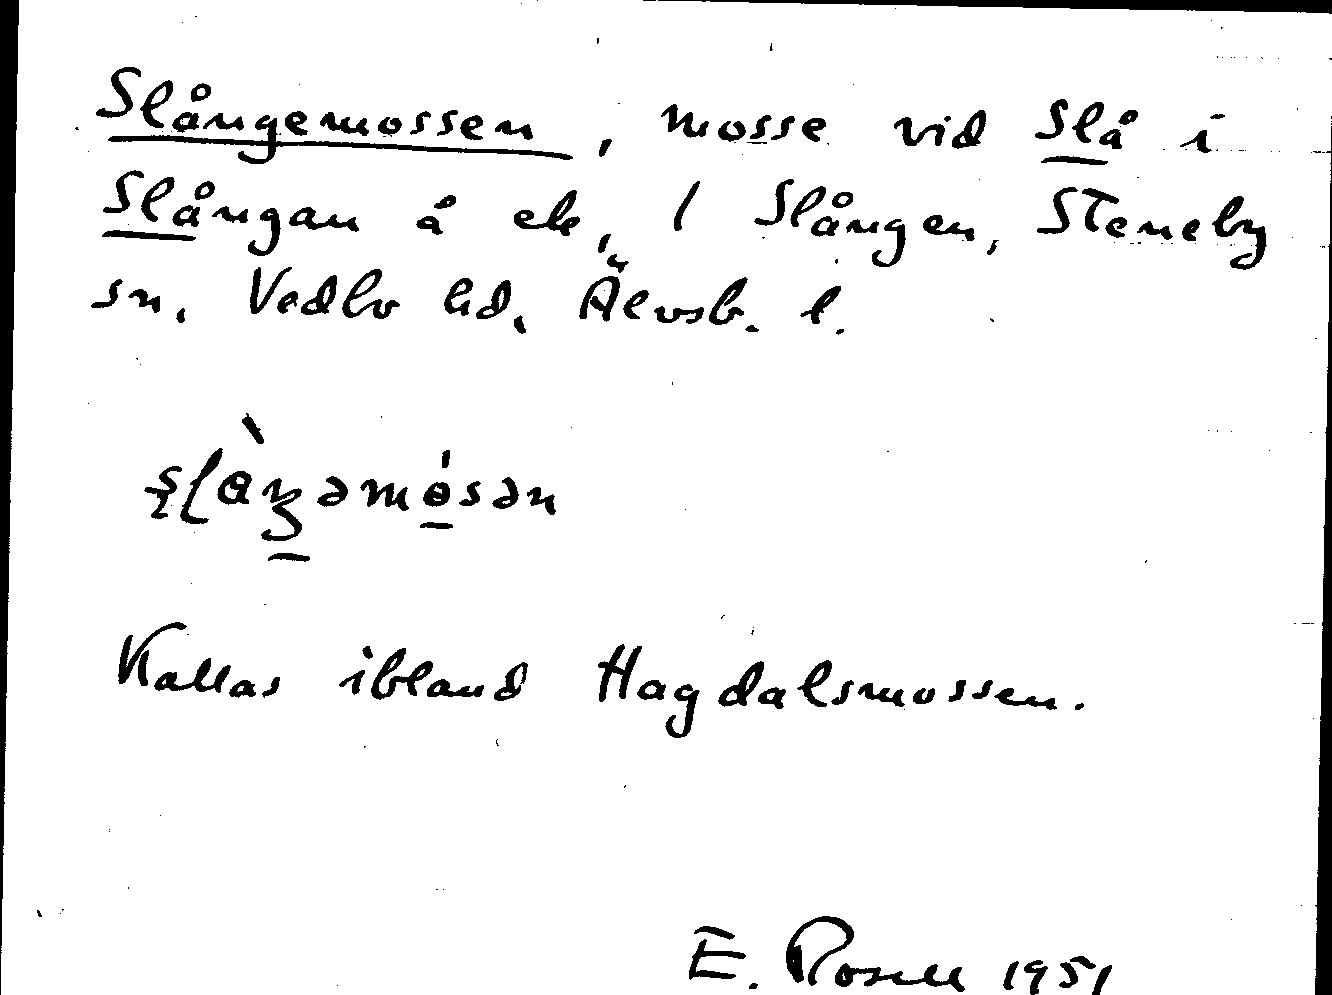 Slångemossen, mosse vid Slå i
Slångan å ek, / Slången, Steneby
sn, Vedbo hd, Älvsb. l.
Kallas ibland Hagdalsmossen.
E. Rosell 1951